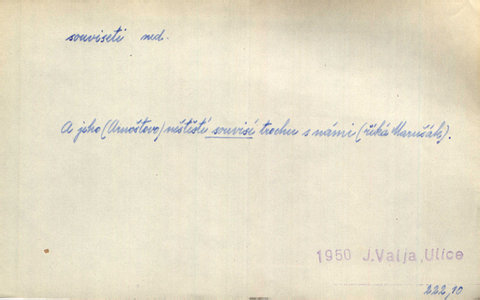 souviseti ned.
A jeho (Arnoštovo) neštěstí souvisí trochu s námi (říká Marušák).
1950 J.Valja,Ulice
222,10